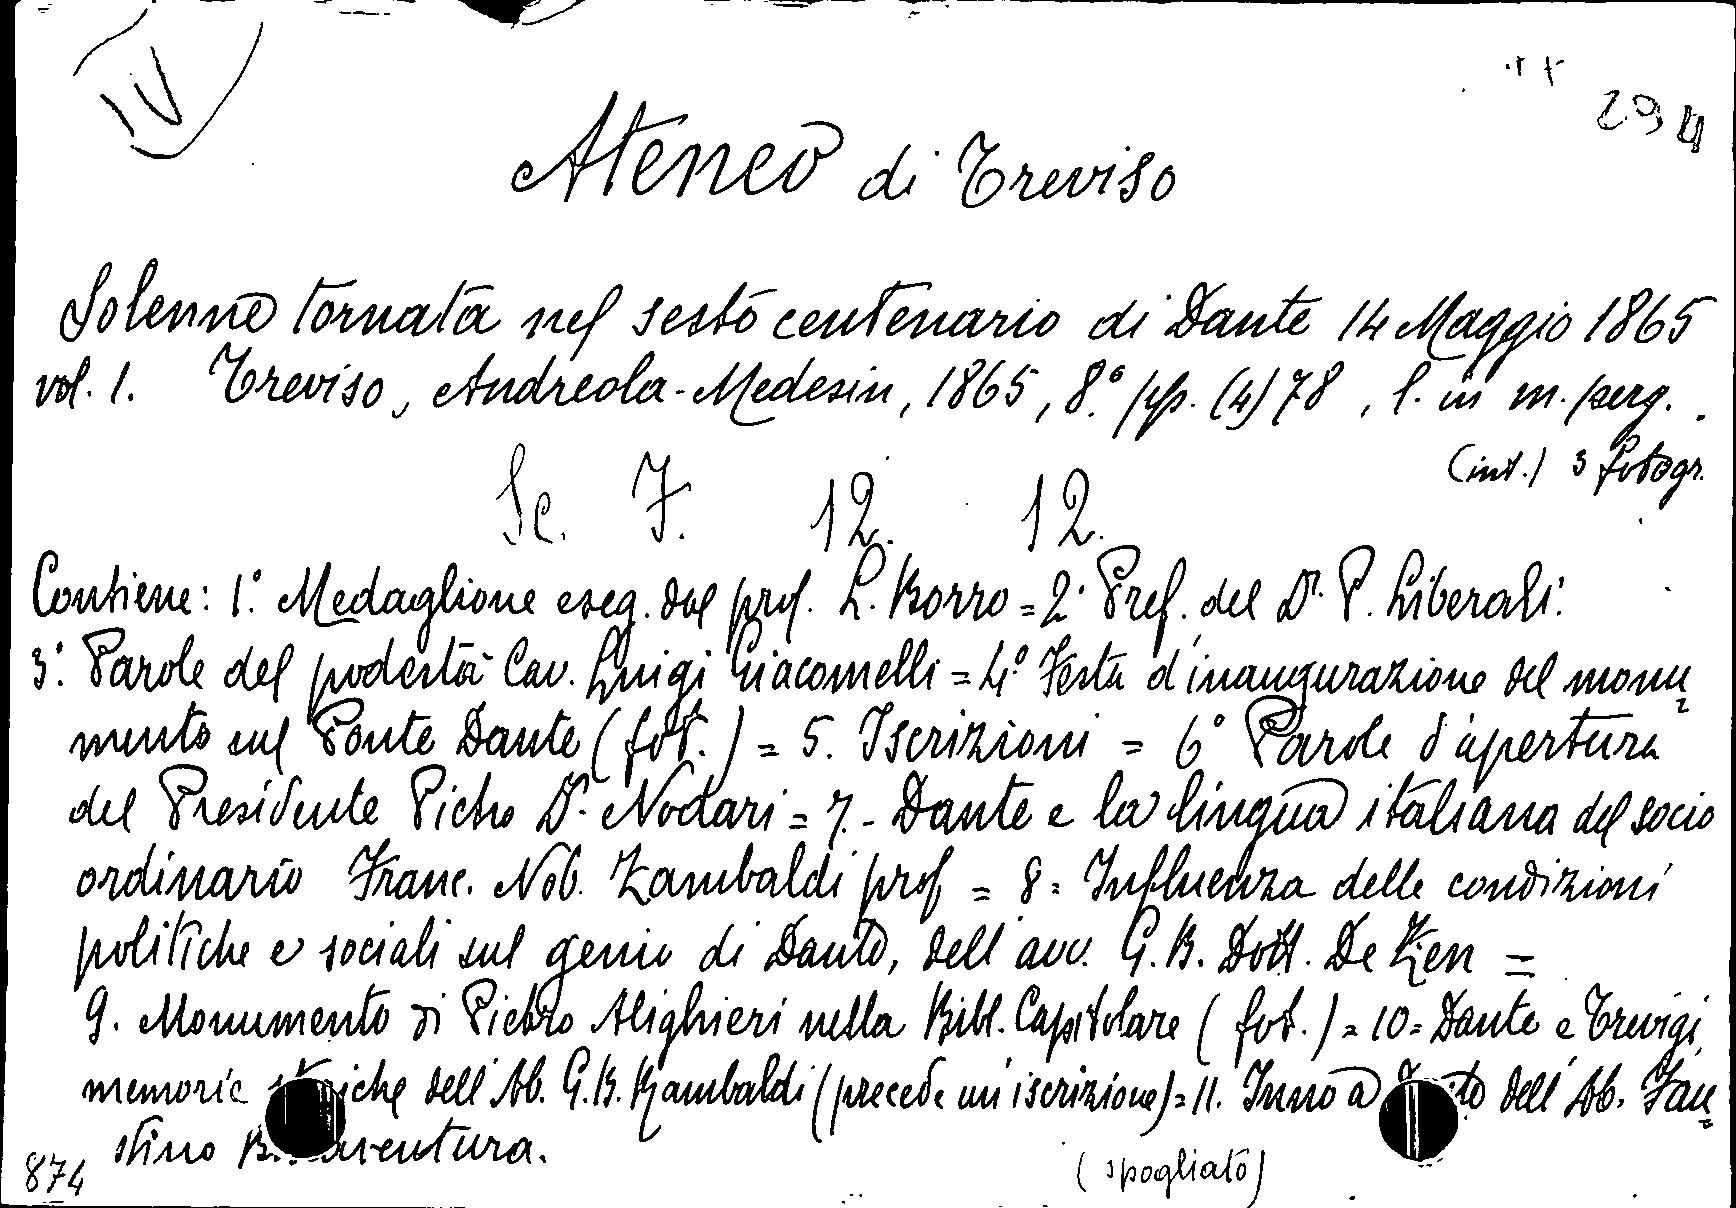 IV
294
Ateneo di Treviso
Solenne tornata nel sesto centenario di Dante 14 Maggio 1865
vol. 1. Treviso, Andreola-Medesin, 1865, 8.° pp. (4) 78, l. in m. perg.
(int.) 3 fotogr.
Sc. 7. 12. 12.
Contiene: 1.° Medaglione eseg. dal prof. L. Borro = 2.° Pref. del Dr. P. Liberali.
3.° Parole del podestà Cav. Luigi Giacomelli = 4.° Festa d'inaugurazione del monu=
mento sul Ponte Dante (fot.) = 5. Iscrizioni = 6° Parole d'apertura
del Presidente Pietro Dr. Nodari = 7.- Dante e la lingua italiana del socio
ordinario Franc. Nob. Zambaldi prof = 8= Influenza delle condizioni
politiche e sociali sul genio di Dante, dell'avv. G.B. Dott. De Zen =
9. Monumento di Pietro Alighieri nella Bibl. Capitolare (fot.) = 10= Dante e Trevigi
memorie dell'Ab. G.B. Zambaldi (precede un'iscrizione) = 11. Inno a dell'Ab. Fau=
stino Bonaventura.
874 (spogliato)